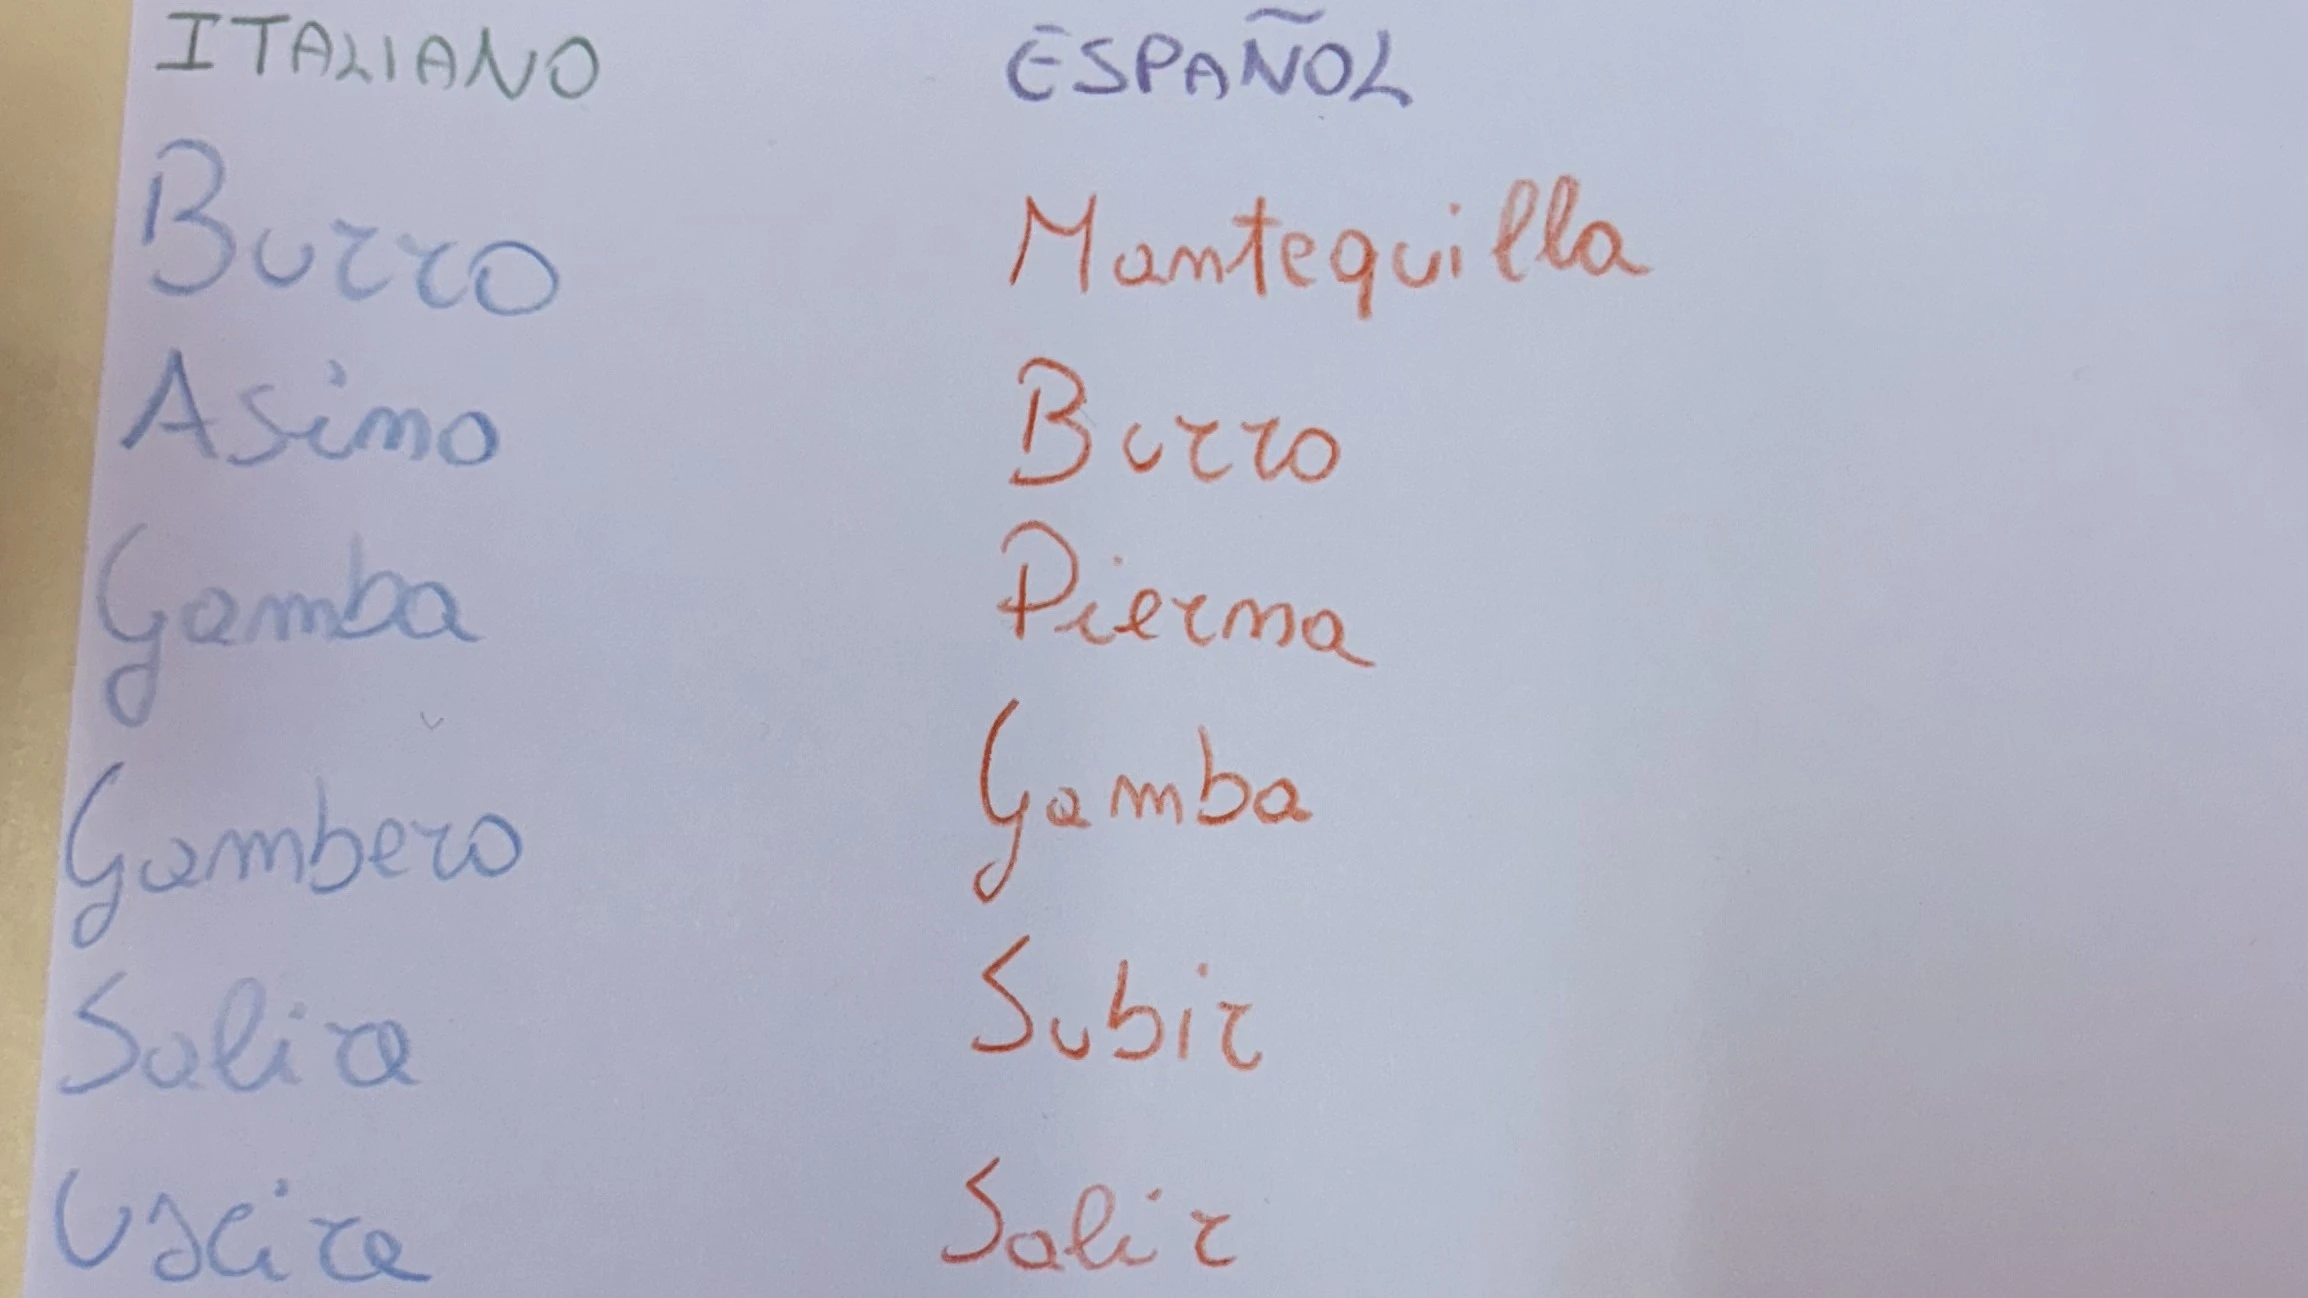 ITALIANO ESPAÑOL
Burro Mantequilla
Asino Burro
Gamba Pierna
Gambero Gamba
Salire Subir
Uscire Salir